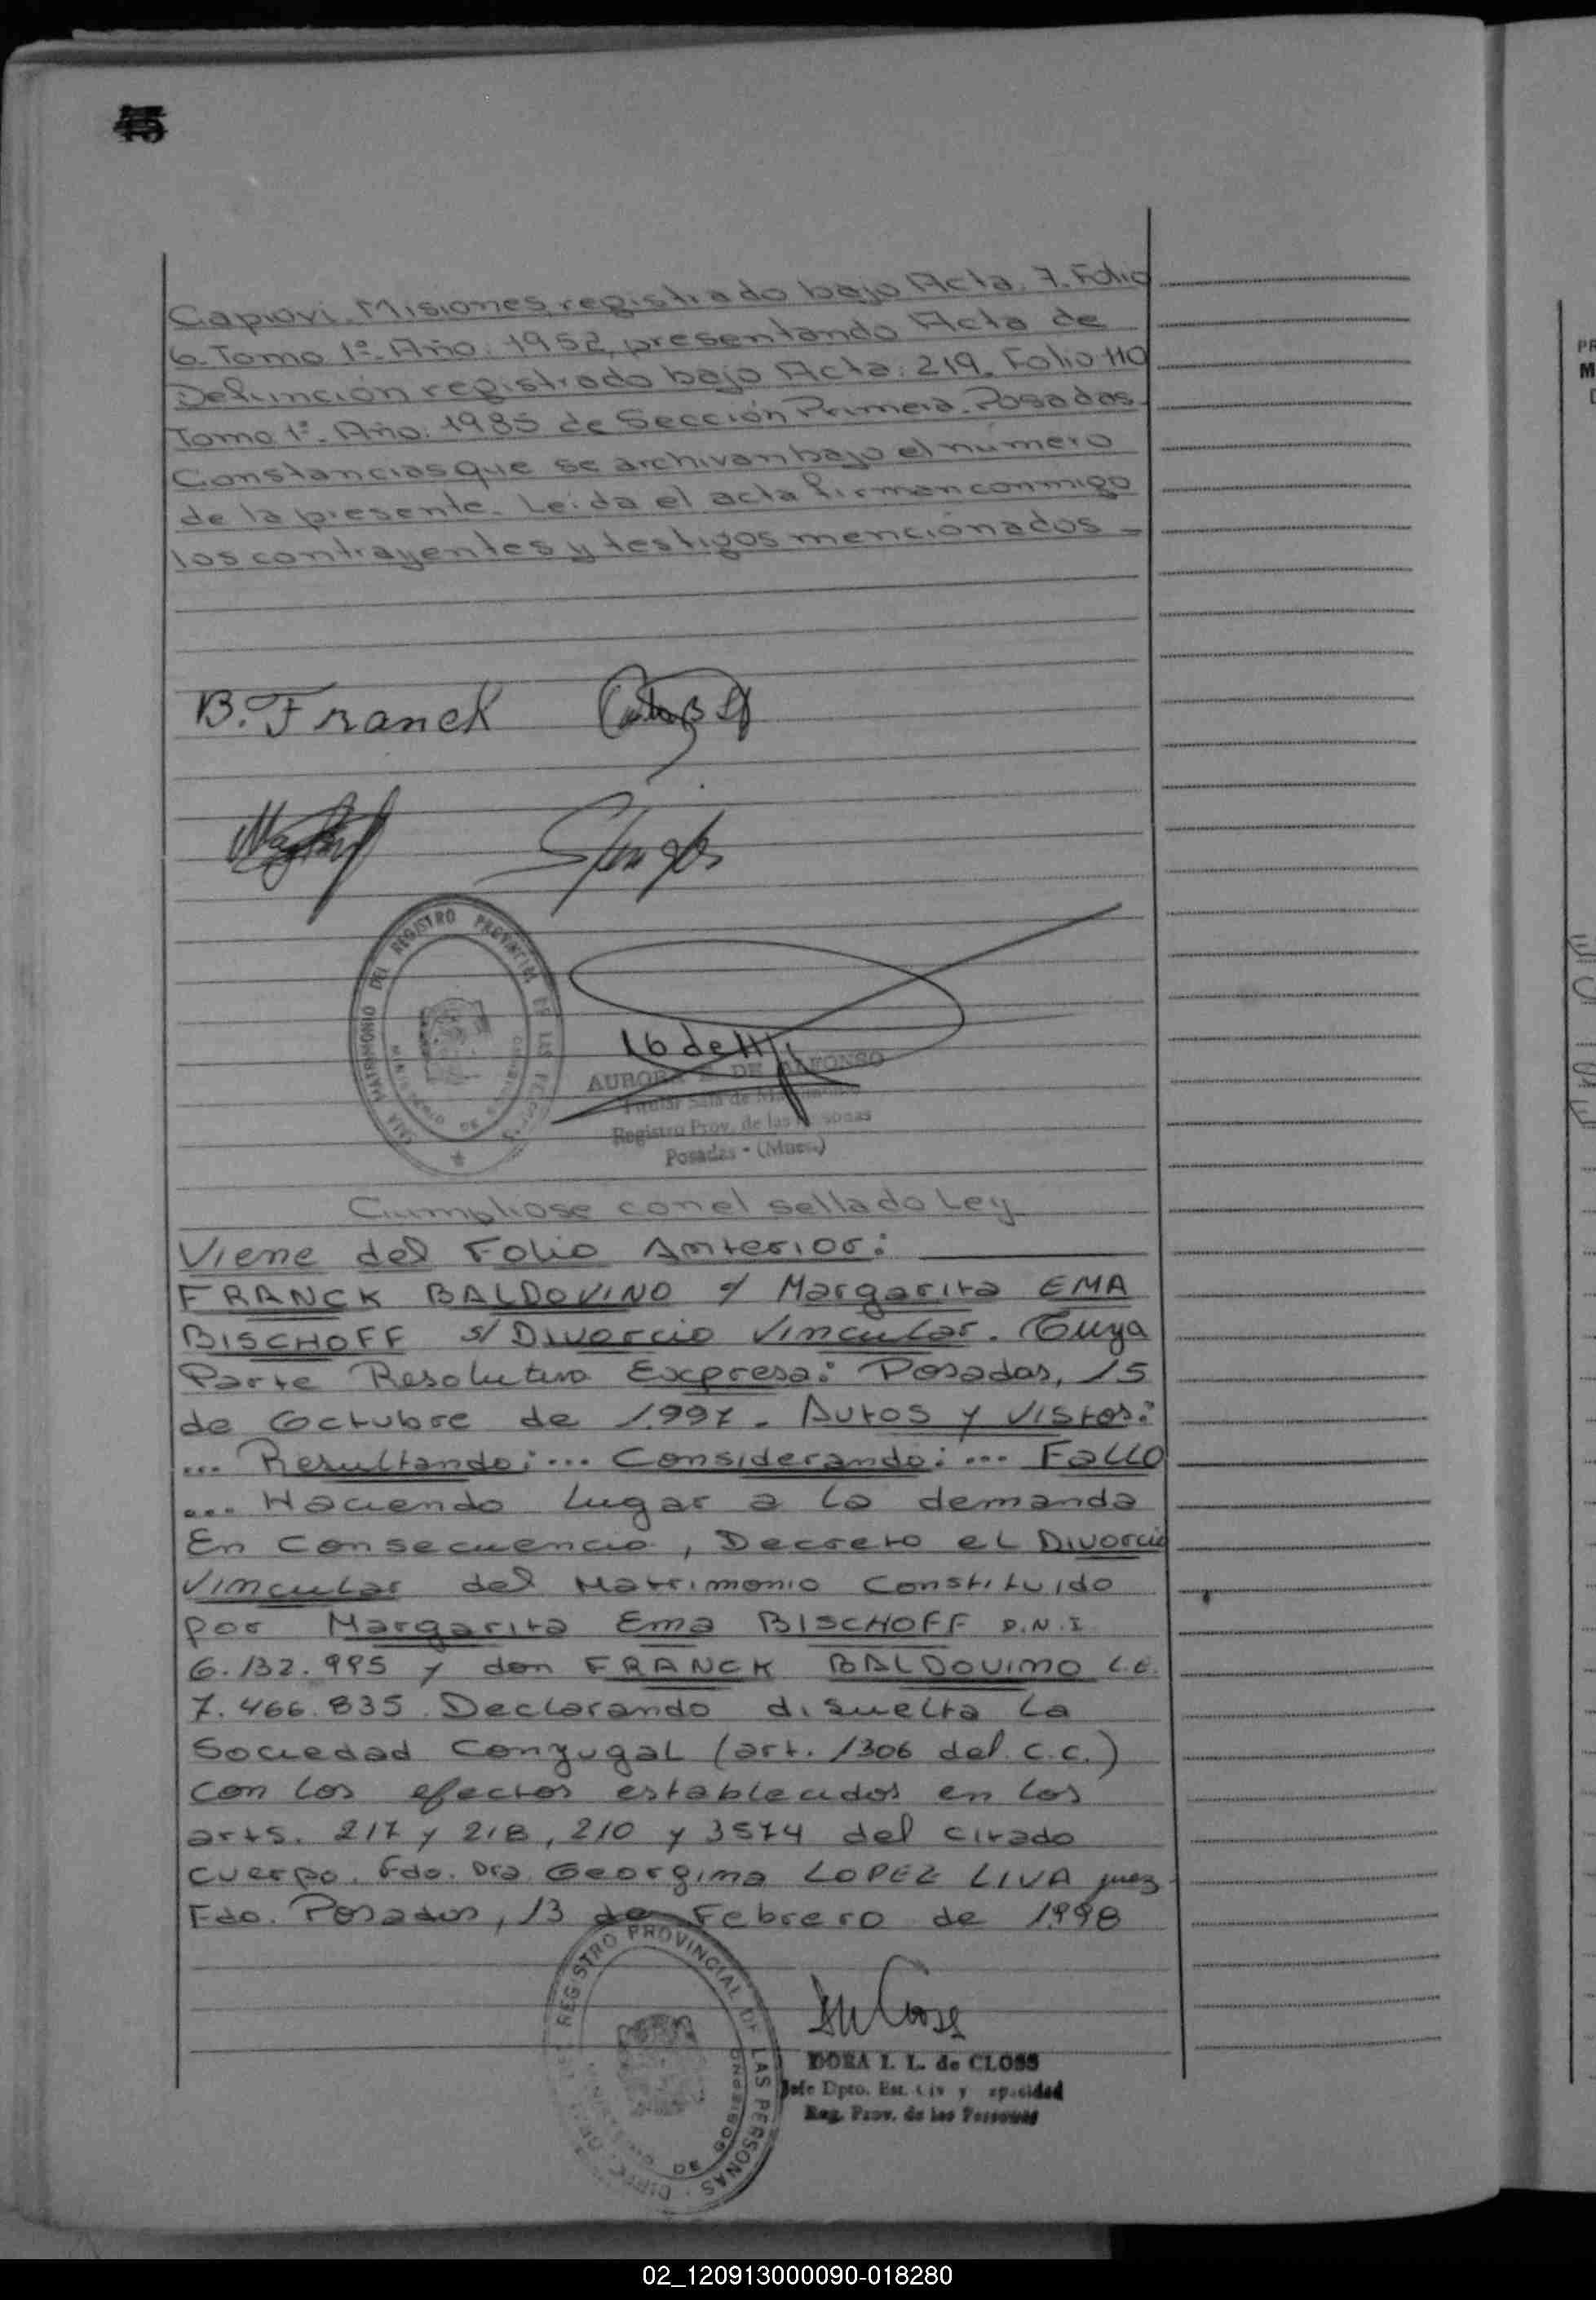 45
Capiovi. Misiones, registrado bajo Acta: 7. Folio
6. Tomo 1º. Año: 1952, presentando Acta de
Defunción registrado bajo Acta: 219. Folio 110
Tomo 1º. Año: 1985 de Sección Primera. Posadas.
Constancias que se archivan bajo el número
de la presente. Leída el acta firman conmigo
los contrayentes y testigos mencionados -
B. Franck
SALA MATRIMONIO DEL REGISTRO PROVINCIAL DE LAS PERSONAS
16 de
AURORA DE ALFONSO
Titular Sala de Matrimonio
Registro Prov. de las Personas
Posadas - (Mnes.)
Cumpliose con el sellado Ley
Viene del Folio Anterior:
FRANCK BALDOVINO c/ Margarita EMA
BISCHOFF s/ Divorcio Vincular. Cuya
Parte Resolutiva Expresa: Posadas, 15
de Octubre de 1.997. Autos y Vistos:
... Resultando: ... Considerando: ... Fallo
... Haciendo lugar a la demanda
En Consecuencia, Decreto el Divorcio
Vincular del Matrimonio Constituido
por Margarita Ema BISCHOFF D.N.I.
6.132.995 y don FRANCK BALDOVINO L.E.
7.466.835. Declarando disuelta la
Sociedad Conyugal (art. 1306 del C.C.)
con los efectos establecidos en los
arts. 217 y 218, 210 y 3574 del citado
cuerpo. Fdo. Dra. Georgina LOPEZ LIVA juez
Fdo. Posadas, 13 de Febrero de 1998
REGISTRO PROVINCIAL DE LAS PERSONAS
DORA I. L. de CLOSS
Jefe Dpto. Est. Civ y apacidad
Reg. Prov. de las Personas
02_120913000090-018280